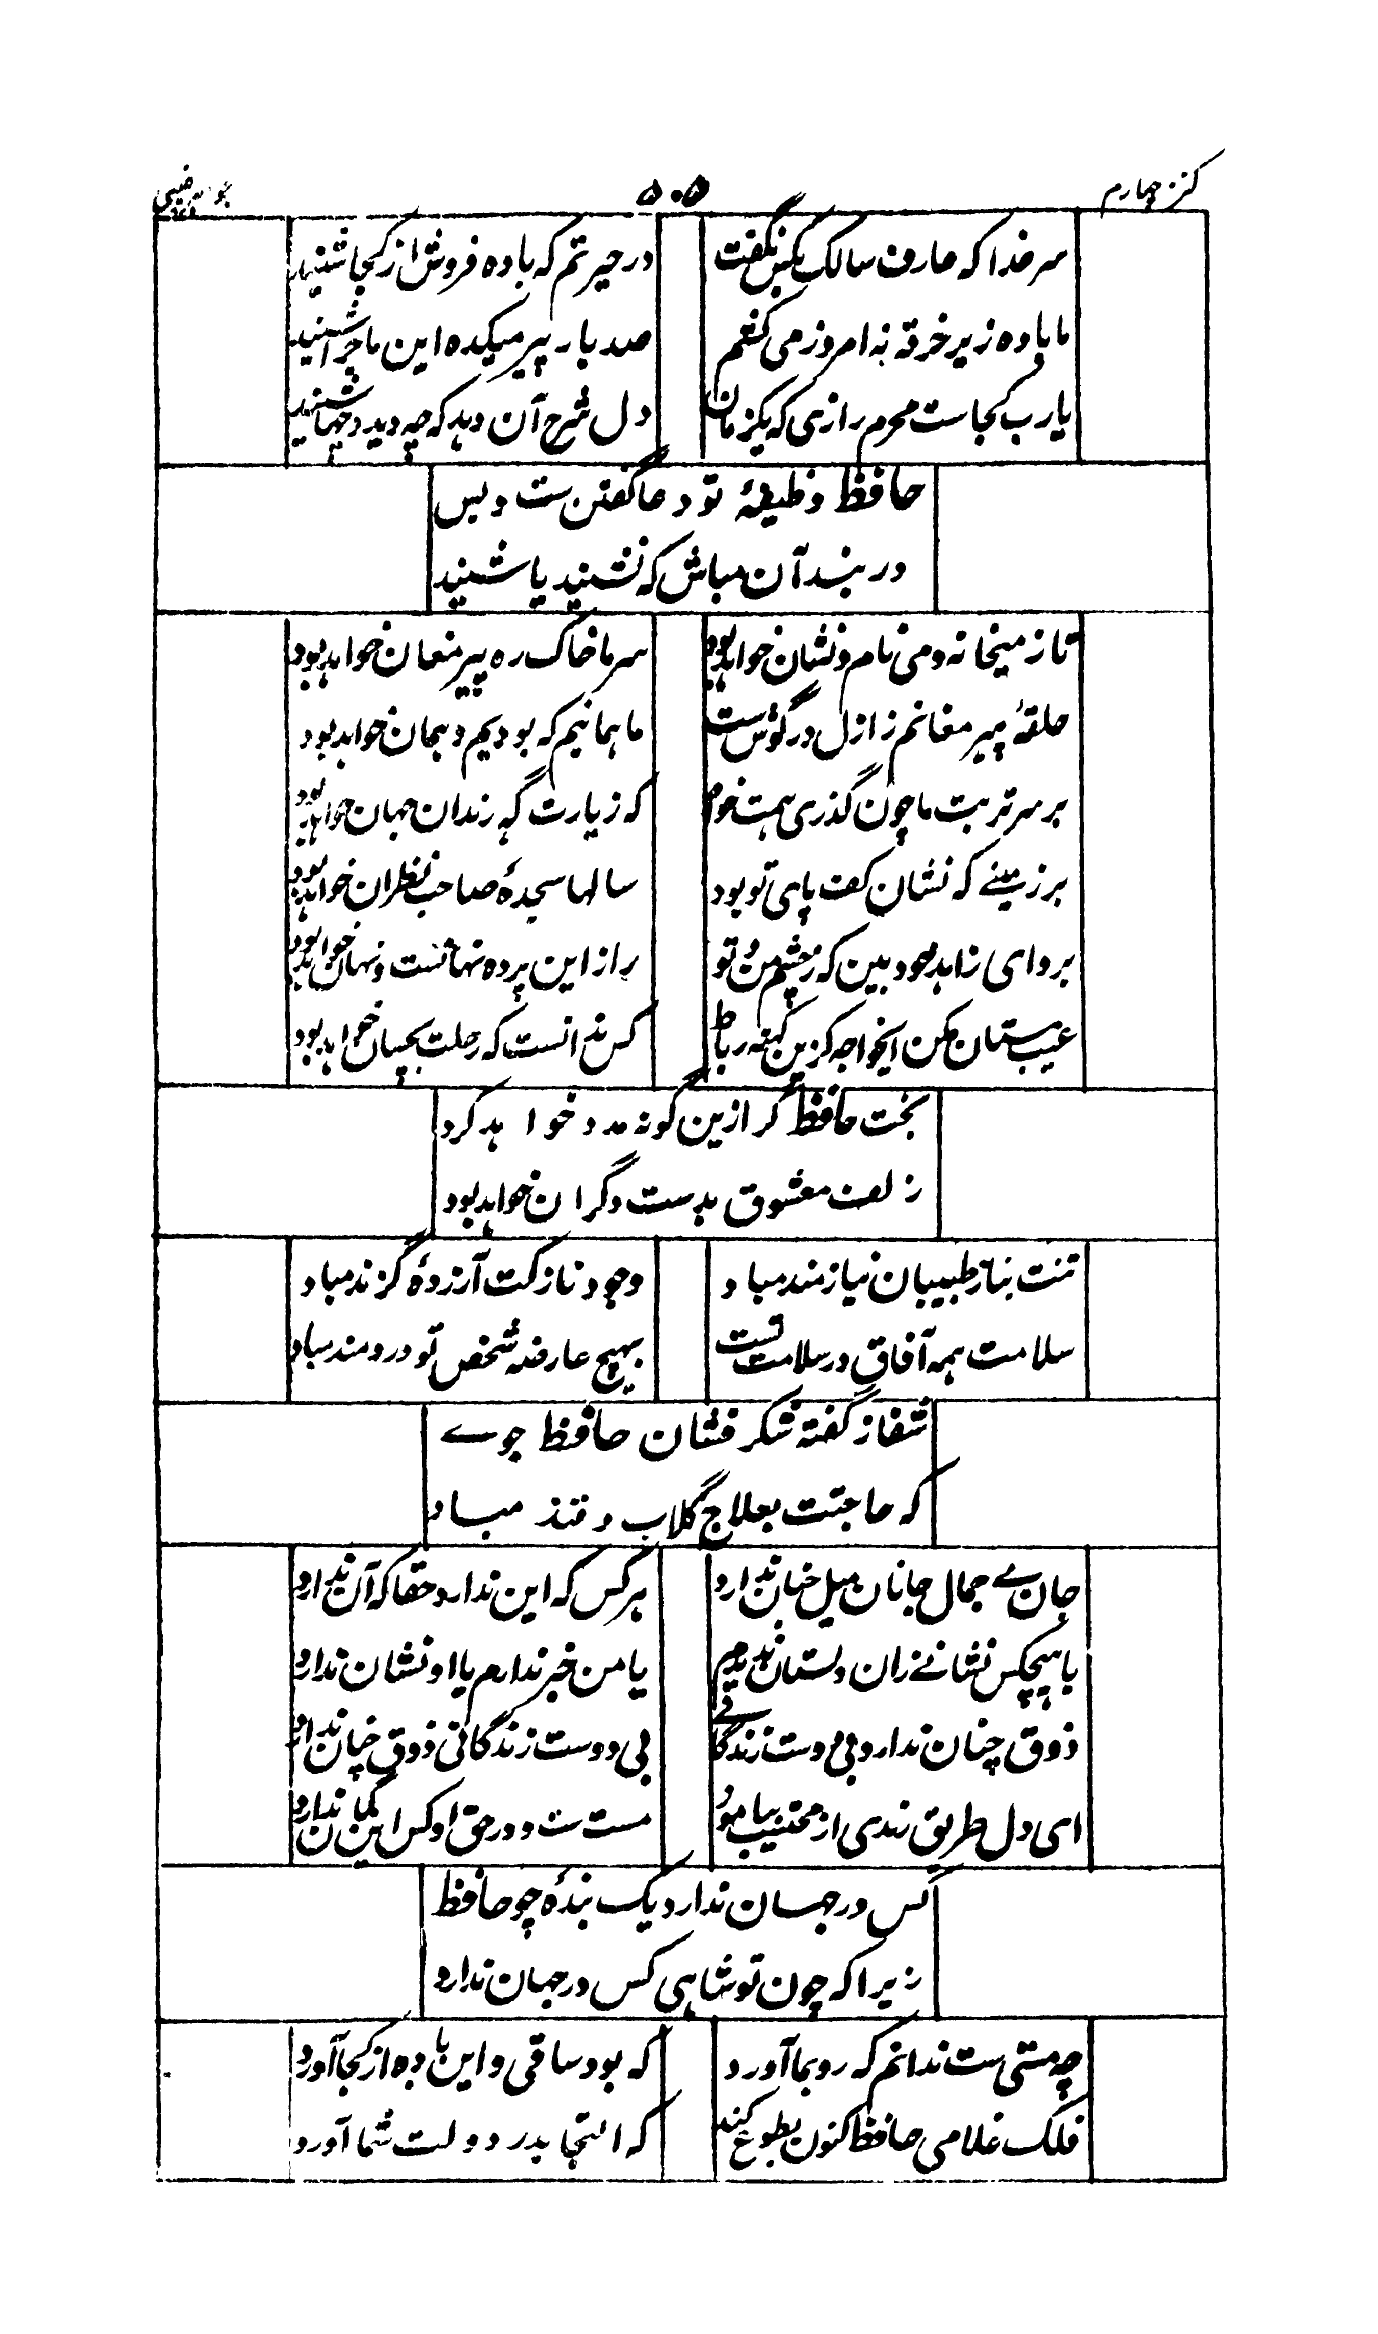 کنز چهارم
۵۰۵
سر خدا که عارف سالک بکس نگفت
در حیرتم که باده فروش از کجا شنید
ما باده زیر خرقه نه امروز می کشیم
صد بار پیر میکده این ماجرا شنید
یارب کجاست محرم رازی که یکزمان
دل شرح آن دهد که چه دید و چها شنید
حافظ وظیفهٔ تو دعا گفتن ست و بس
در بند آن مباش که نشنید یا شنید
تا ز میخانه و می نام و نشان خواهد بود
سر ما خاک ره پیر مغان خواهد بود
حلقهٔ پیر مغانم ز ازل در گوش ست
ما همانیم که بودیم و همان خواهد بود
بر سر تربت ما چون گذری همت خواه
که زیارت گه رندان جهان خواهد بود
بر زمینے که نشان کف پای تو بود
سالها سجدهٔ صاحب نظران خواهد بود
برو ای زاهد خود بین که ز چشم من و تو
راز این پرده نهانست و نهان خواهد بود
عیب مستان مکن ایخواجه کزین کهنه رباط
کس ندانست که رحلت بچسان خواهد بود
بخت حافظ گر ازین گونه مدد خواهد کرد
زلف معشوق بدست دگران خواهد بود
تنت بناز طبیبان نیازمند مباد
وجود نازکت آزردهٔ گزند مباد
سلامت همه آفاق در سلامت تست
بهیچ عارضه شخص تو دردمند مباد
شفا ز گفته شکر فشان حافظ جوے
که حاجتت بعلاج گلاب و قند مباد
جان بے جمال جانان میل جهان ندارد
هر کس که این ندارد حقا که آن ندارد
با هیچکس نشانے زان دلستان ندیدم
یا من خبر ندارم یا او نشان ندارد
ذوق چنان ندارد بی دوست زندگانے
بی دوست زندگانی ذوق چنان ندارد
ای دل طریق رندی از محتسب بیاموز
مست ست و در حق او کس این گمان ندارد
کس در جهان ندارد یک بندهٔ چو حافظ
زیرا که چون تو شاهی کس در جهان ندارد
چه مستی ست ندانم که رو بما آورد
که بود ساقی و این باده از کجا آورد
فلک غلامی حافظ کنون بطوع کند
که التجا بدر دولت شما آورد